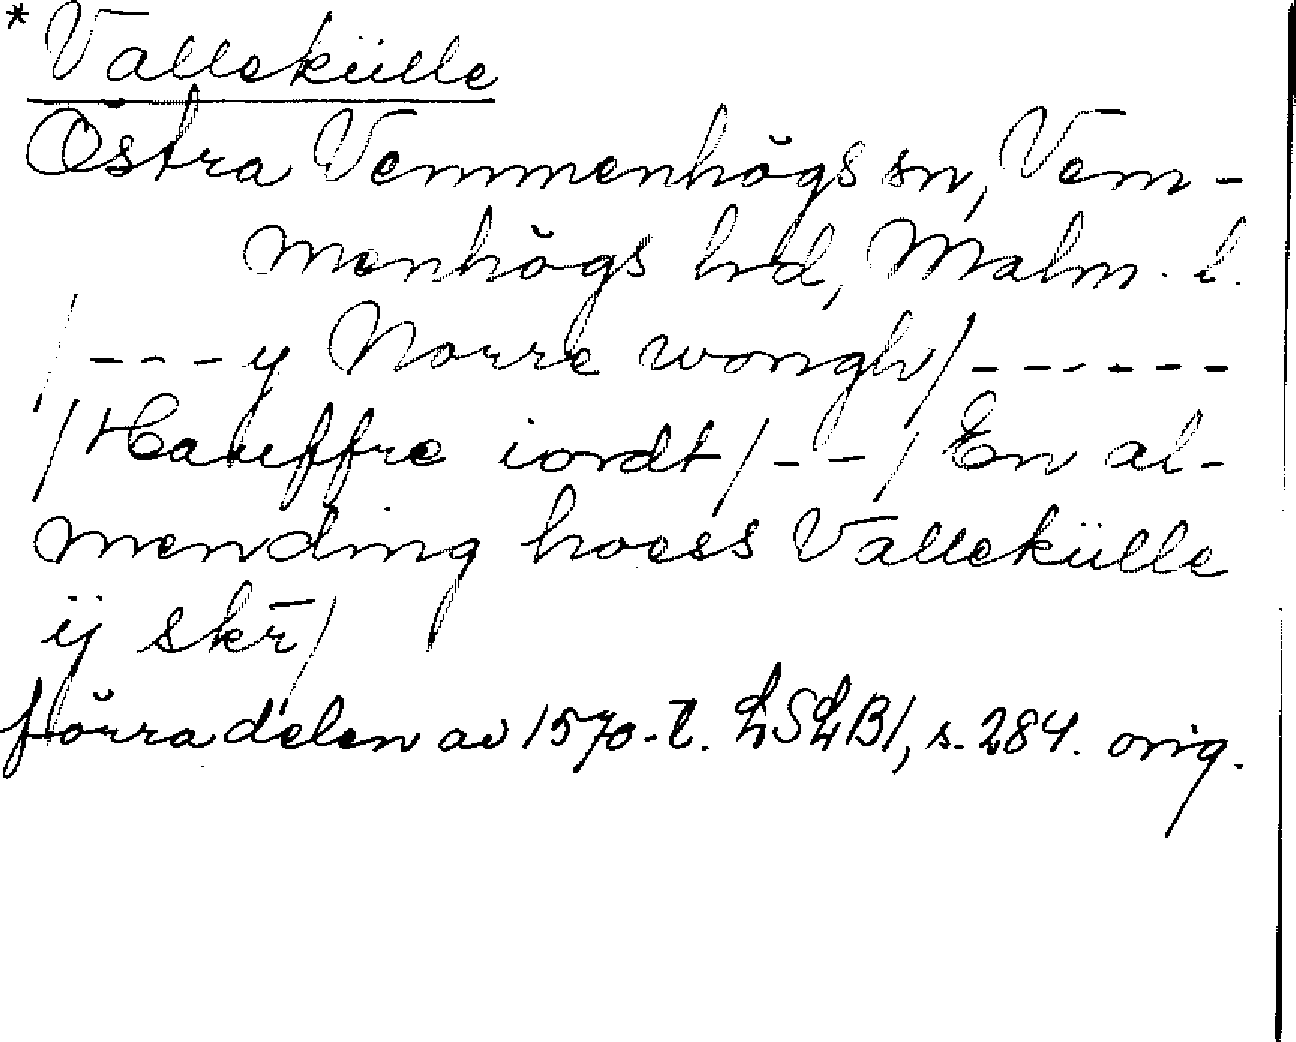 * Vallekülle
Östra Vemmenhögs sn, Vem-
menhögs hrd, Malm. l.
/---y Norre wongh/------
/Haueffre iordt/--/En al-
mending hoess Vallekülle
ij skr̄/
förra delen av 1570-t. LSLB1, s. 284. orig.